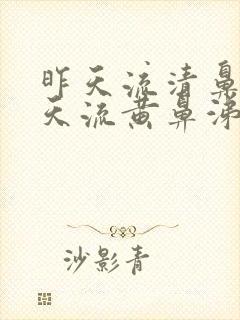 昨天流清鼻
天流黄鼻涕
沙影青